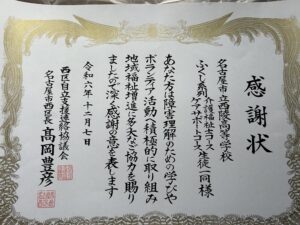 感謝状
名古屋市立西陵高等学校
ふくし系列 介護福祉士コース
ケアサポートコース 生徒一同 様
あなた方は障害理解のための学びや
ボランティア活動へ積極的に取り組み
地域福祉増進に多大なご協力を賜り
ましたので深く感謝の意を表します
令和六年十二月七日
西区自立支援連絡協議会
名古屋市西区長 髙岡豊彦